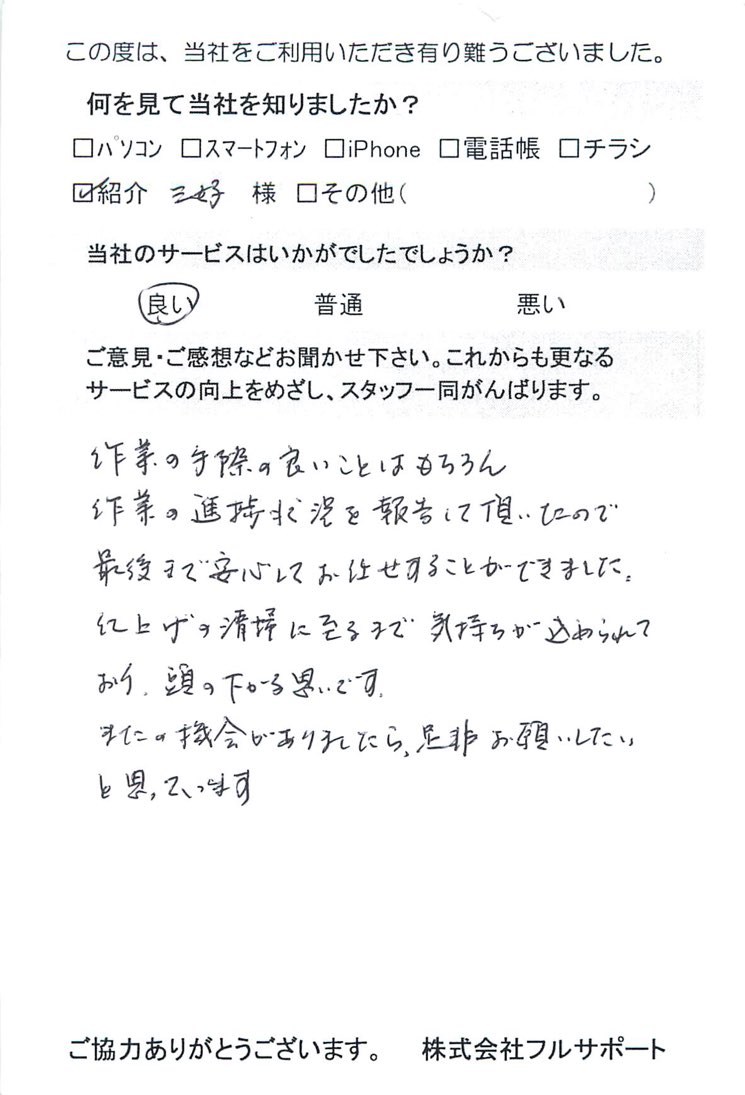 この度は、当社をご利用いただき有り難うございました。
何を見て当社を知りましたか？
□パソコン □スマートフォン □iPhone □電話帳 □チラシ
☑紹介 三好 様 □その他( )
当社のサービスはいかがでしたでしょうか？
良い 普通 悪い
ご意見・ご感想などお聞かせ下さい。これからも更なる
サービスの向上をめざし、スタッフ一同がんばります。
作業の手際の良いことはもちろん
作業の進捗状況を報告して頂いたので
最後まで安心してお任せすることができました。
仕上げの清掃に至るまで気持ちが込められて
おり、頭の下がる思いです。
またの機会がありましたら、是非お願いしたい
と思っています
ご協力ありがとうございます。 株式会社フルサポート